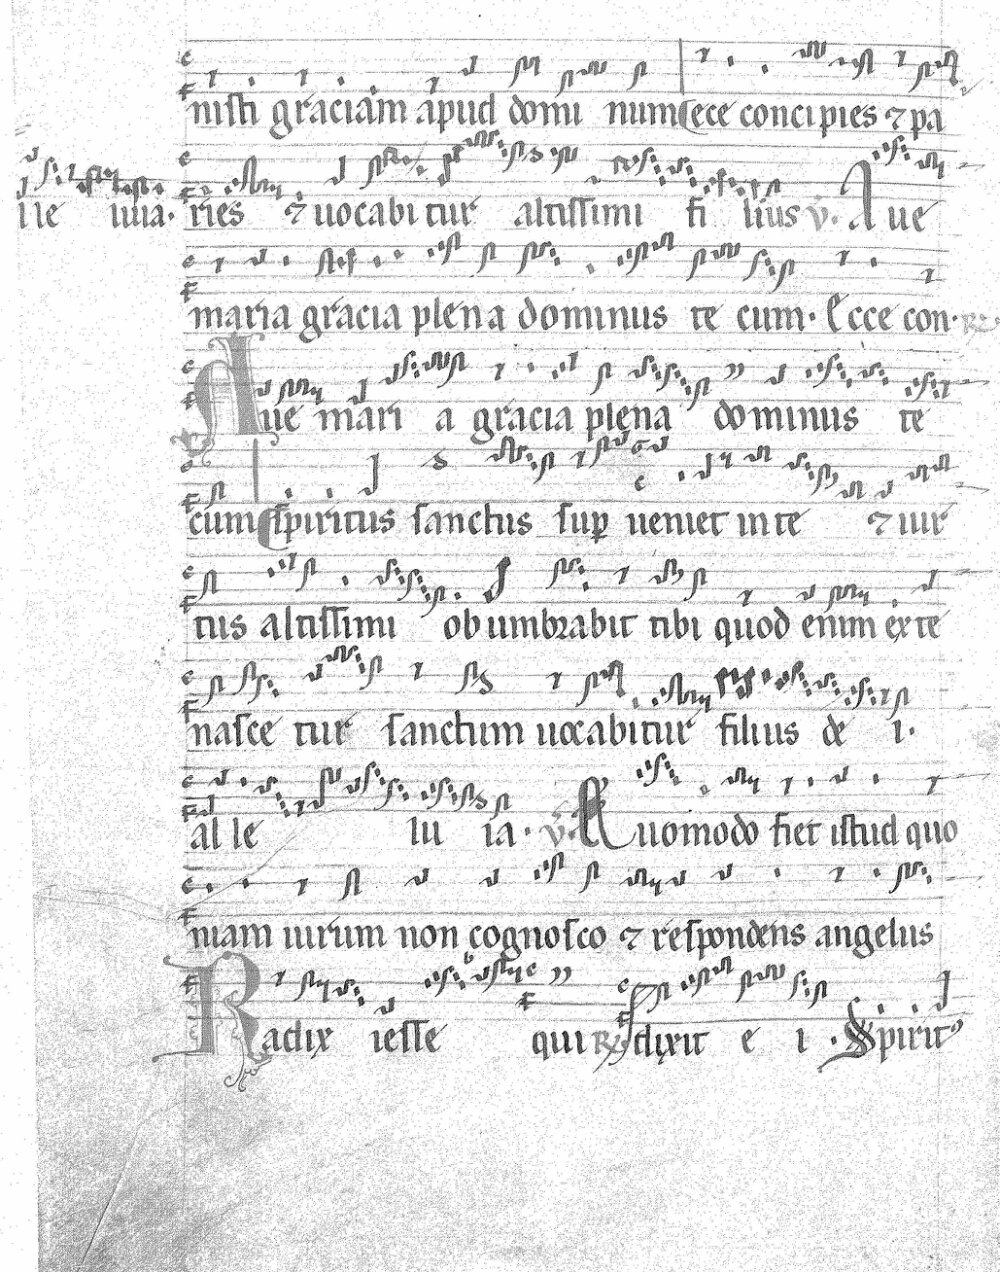 nisti graciam apud domi num Ecce concipies ⁊ pa
ries ⁊ uocabitur altissimi fi lius ℣. Aue
lle luia.
maria gracia plena dominus te cum. Ecce con.
Aue mari a gracia plena dominus te
cum spiritus sanctus sup ueniet in te ⁊ uir
tus altissimi obumbrabit tibi quod enim ex te
nasce tur sanctum uocabitur filius de i.
al le lu ia. ℣. Quomodo fiet istud quo
niam uirum non cognosco ⁊ respondens angelus
Radix iesse qui ℟ dixit e i. Spirit